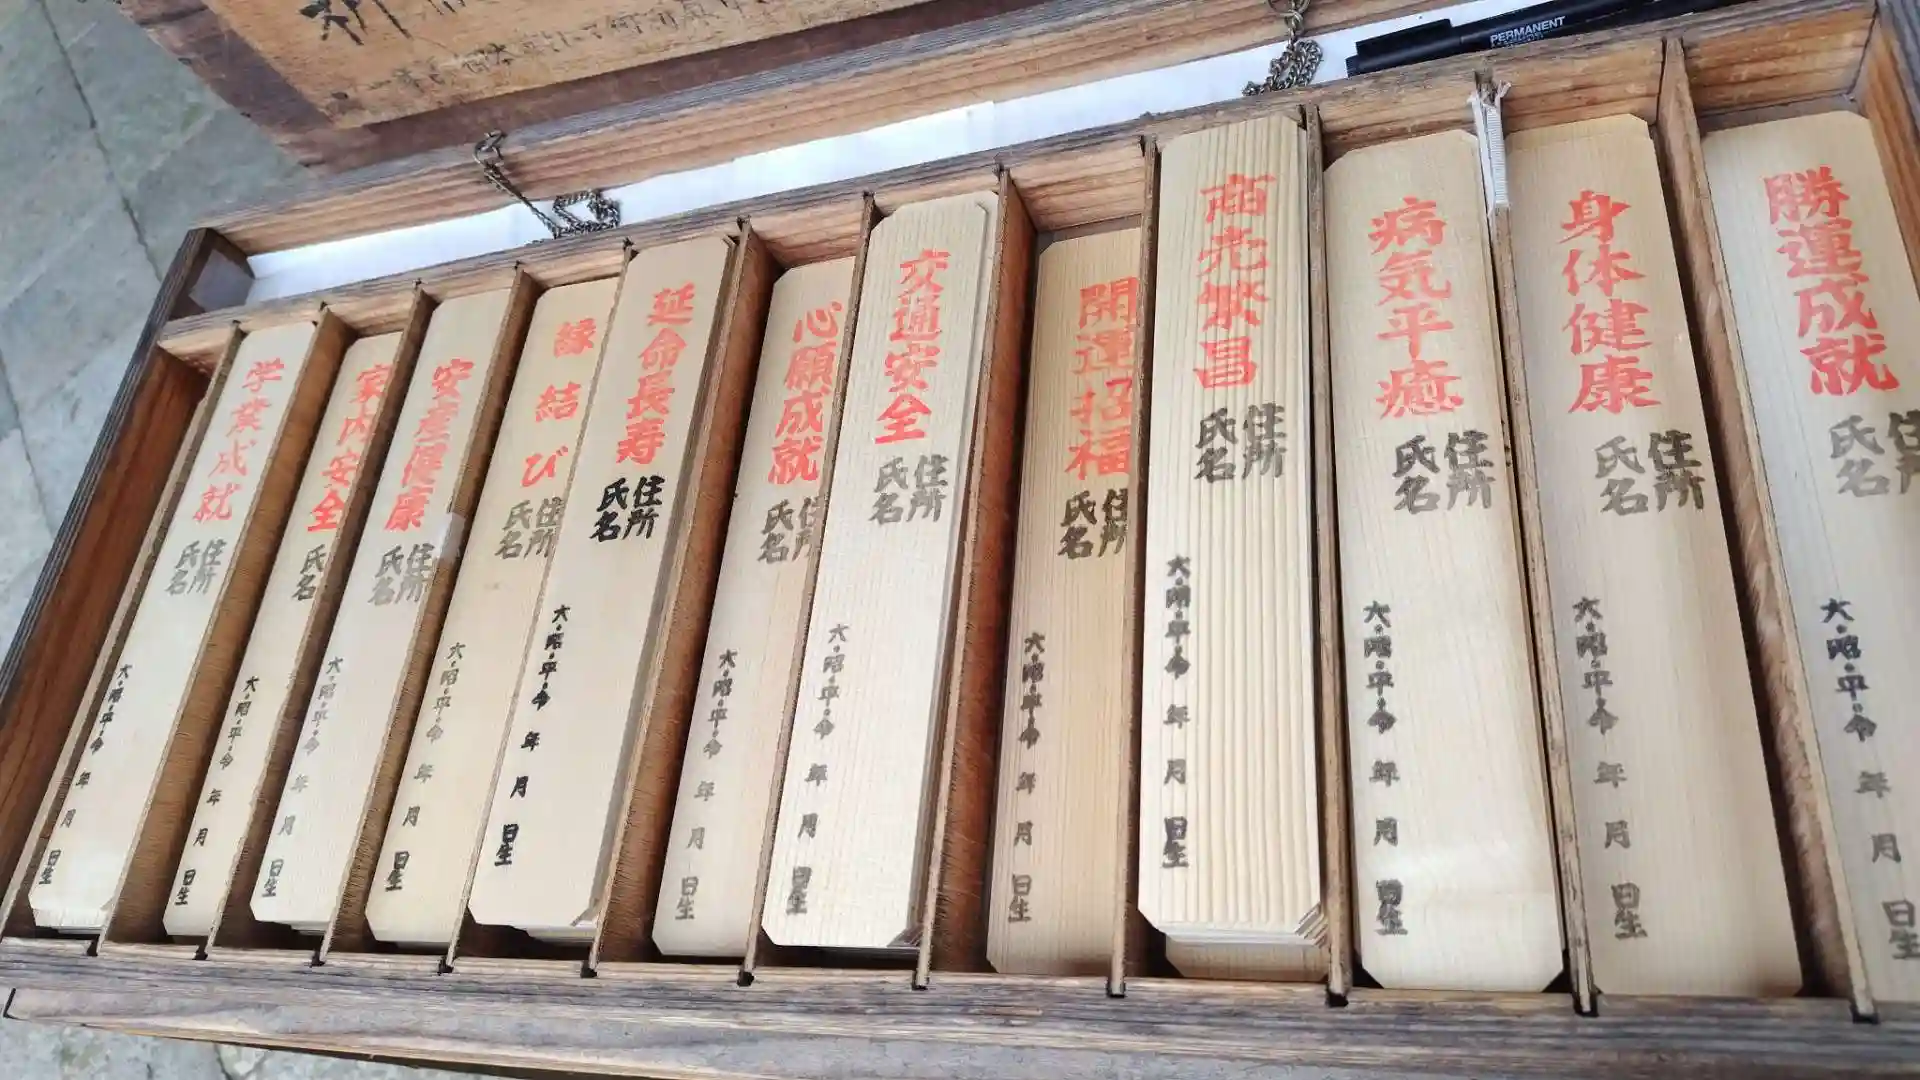 祈
PERMANENT
学業成就
住所
氏名
大・昭・平・令 年 月 日生
家内安全
氏名
大・昭・平・令 年 月 日生
安産健康
住所
氏名
大・昭・平・令 年 月 日生
縁結び
住所
氏名
大・昭・平・令 年 月 日生
延命長寿
住所
氏名
大・昭・平・令 年 月 日生
心願成就
住所
氏名
大・昭・平・令 年 月 日生
交通安全
住所
氏名
大・昭・平・令 年 月 日生
開運招福
住所
氏名
大・昭・平・令 年 月 日生
商売繁昌
住所
氏名
大・昭・平・令 年 月 日生
病気平癒
住所
氏名
大・昭・平・令 年 月 日生
身体健康
住所
氏名
大・昭・平・令 年 月 日生
勝運成就
住所
氏名
大・昭・平・令 年 月 日生